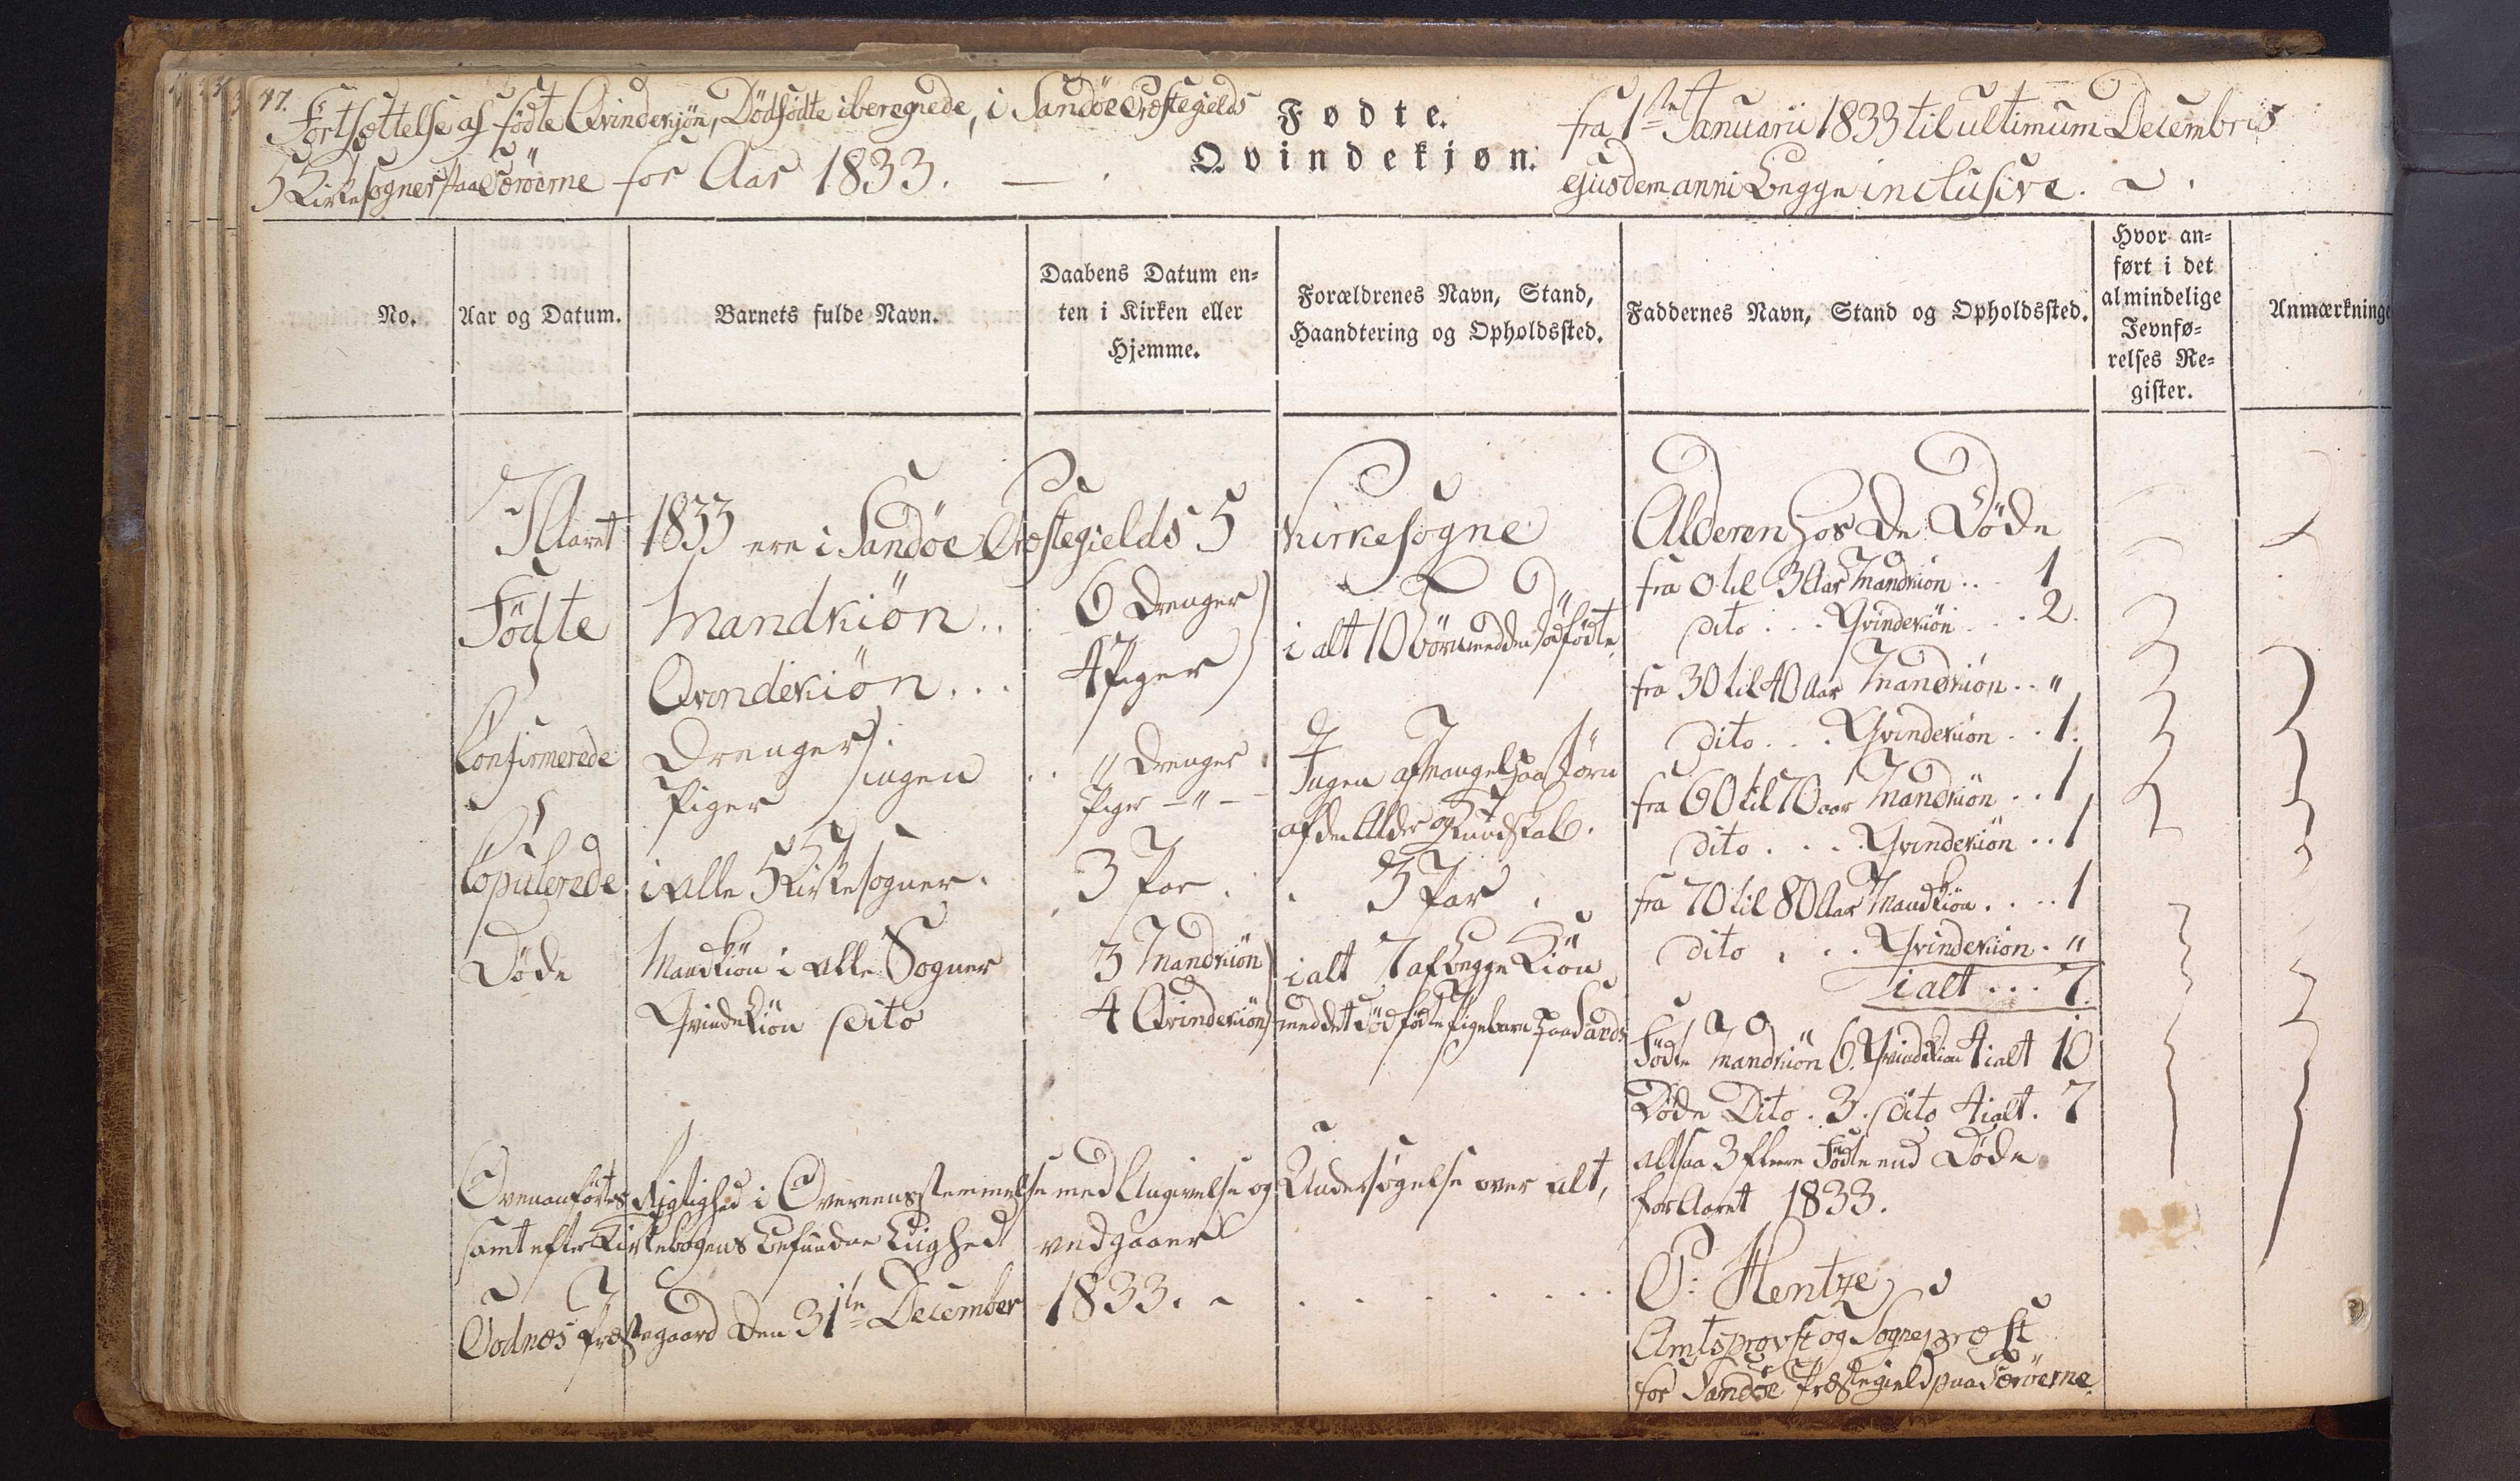 47.
Fortsættelse af födte Qvindekjön, Dödfödte iberegnede, i Sandöe Præstegields
5 Kirkesogner paa Færöerne for Aar 1833. — .
Fødte.
Qvindekjøn.
fra 1ste Januarii 1833 til ultimum Decembris
ejusdem anni begge inclusive.
No.
Aar og Datum.
Barnets fulde Navn.
Daabens Datum en-
ten i Kirken eller
Hjemme.
Forældrenes Navn, Stand,
Haandtering og Opholdssted.
Faddernes Navn, Stand og Opholdssted.
Hvor an-
ført i det
almindelige
Jevnfø-
relses Re-
gister.
Anmærkninge
I Aaret 1833 ere i Sandöe Præstegields 5 Kirkesogne
Födte Mandkiön .. 6 Drenger
Qvindekiön ... 4 Piger
i alt 10 börn med den Dödfödte.
Confirmerede Drenger . . " Drenger
Piger ingen Piger — " —
Ingen af Mangel paa börn
af den Alder og Kundskab.
Copulerede i alle 5 Kirkesogner. 3 Par . . 3 Par .
Döde Mandkiön i alle Sogner 3 Mandkiön i alt 7 af begge Kiön
Qvindekiön dito 4 Qvindekiön med det Dödfödte Pigebarn paa Sand.
Ovenanförtes Rigtighed i Overeensstemmelse med Angivelse og Undersögelse over alt,
samt efter Kirkebogens befundne Liighed vedgaaer
Todnæs Præstegaard den 31te December 1833.
Alderen hos De Döde
fra 0 til 3 Aar Mandkiön .. 1
dito ... Qvindekiön ... 2.
fra 30 til 40 Aar Mandkiön .. "
dito ... Qvindekiön .. 1.
fra 60 til 70 aar Mandkiön .. 1
dito ... Qvindekiön .. 1
fra 70 til 80 Aar Mandkiön .... 1
dito ... Qvindekiön . "
i alt ... 7.
Födte Mandkiön 6. Qvindekiön 4 i alt 10
Döde Dito . 3. dito 4 i alt . 7
altsaa 3 flere Födte end Döde
for Aaret 1833.
P: Hentze
Amtsprovst og Sognepræst
for Sandöe Præstegield paa Færöerne.